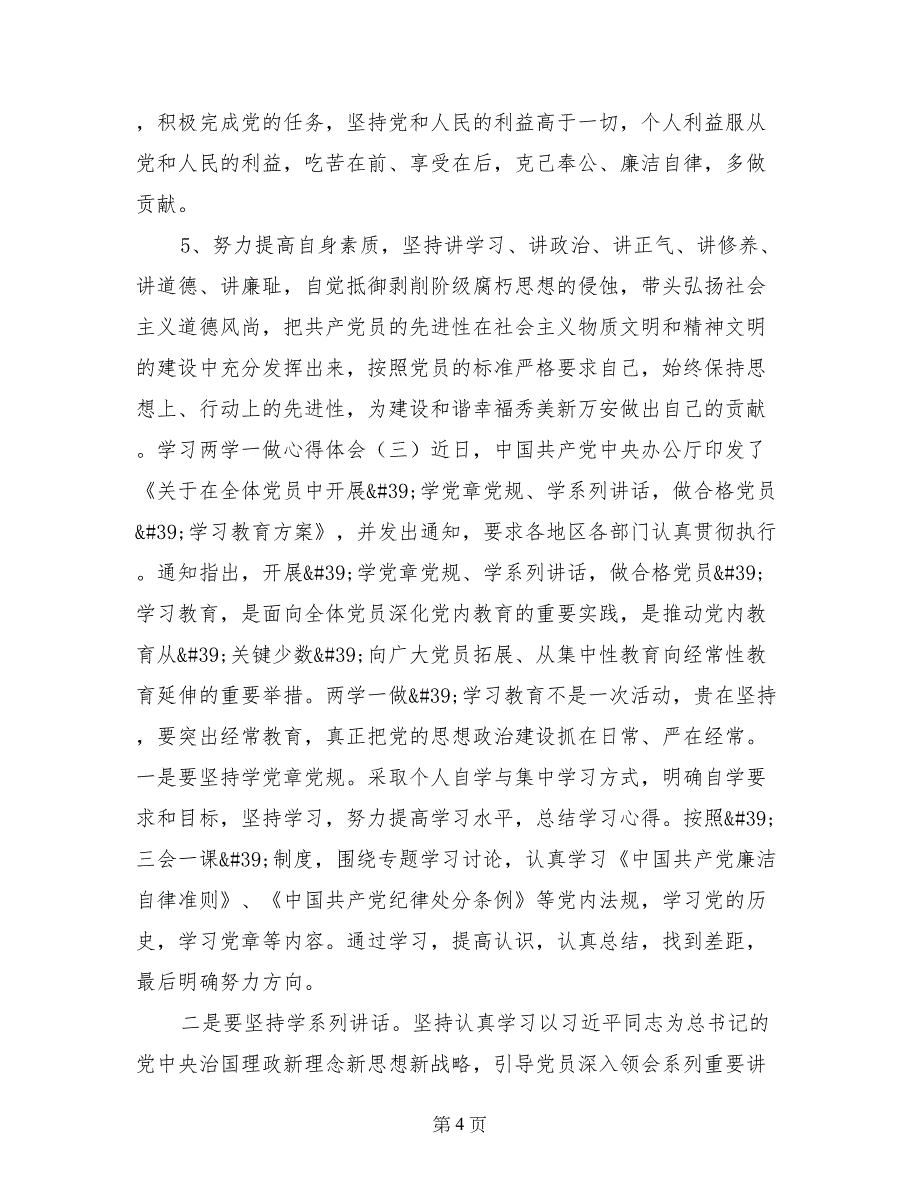 ，积极完成党的任务，坚持党和人民的利益高于一切，个人利益服从
党和人民的利益，吃苦在前、享受在后，克己奉公、廉洁自律，多做
贡献。
5、努力提高自身素质，坚持讲学习、讲政治、讲正气、讲修养、
讲道德、讲廉耻，自觉抵御剥削阶级腐朽思想的侵蚀，带头弘扬社会
主义道德风尚，把共产党员的先进性在社会主义物质文明和精神文明
的建设中充分发挥出来，按照党员的标准严格要求自己，始终保持思
想上、行动上的先进性，为建设和谐幸福秀美新万安做出自己的贡献
。学习两学一做心得体会（三）近日，中国共产党中央办公厅印发了
《关于在全体党员中开展&#39;学党章党规、学系列讲话，做合格党员
&#39;学习教育方案》，并发出通知，要求各地区各部门认真贯彻执行
。通知指出，开展&#39;学党章党规、学系列讲话，做合格党员&#39;
学习教育，是面向全体党员深化党内教育的重要实践，是推动党内教
育从&#39;关键少数&#39;向广大党员拓展、从集中性教育向经常性教
育延伸的重要举措。两学一做&#39;学习教育不是一次活动，贵在坚持
，要突出经常教育，真正把党的思想政治建设抓在日常、严在经常。
一是要坚持学党章党规。采取个人自学与集中学习方式，明确自学要
求和目标，坚持学习，努力提高学习水平，总结学习心得。按照&#39;
三会一课&#39;制度，围绕专题学习讨论，认真学习《中国共产党廉洁
自律准则》、《中国共产党纪律处分条例》等党内法规，学习党的历
史，学习党章等内容。通过学习，提高认识，认真总结，找到差距，
最后明确努力方向。
二是要坚持学系列讲话。坚持认真学习以习近平同志为总书记的
党中央治国理政新理念新思想新战略，引导党员深入领会系列重要讲
第 4 页